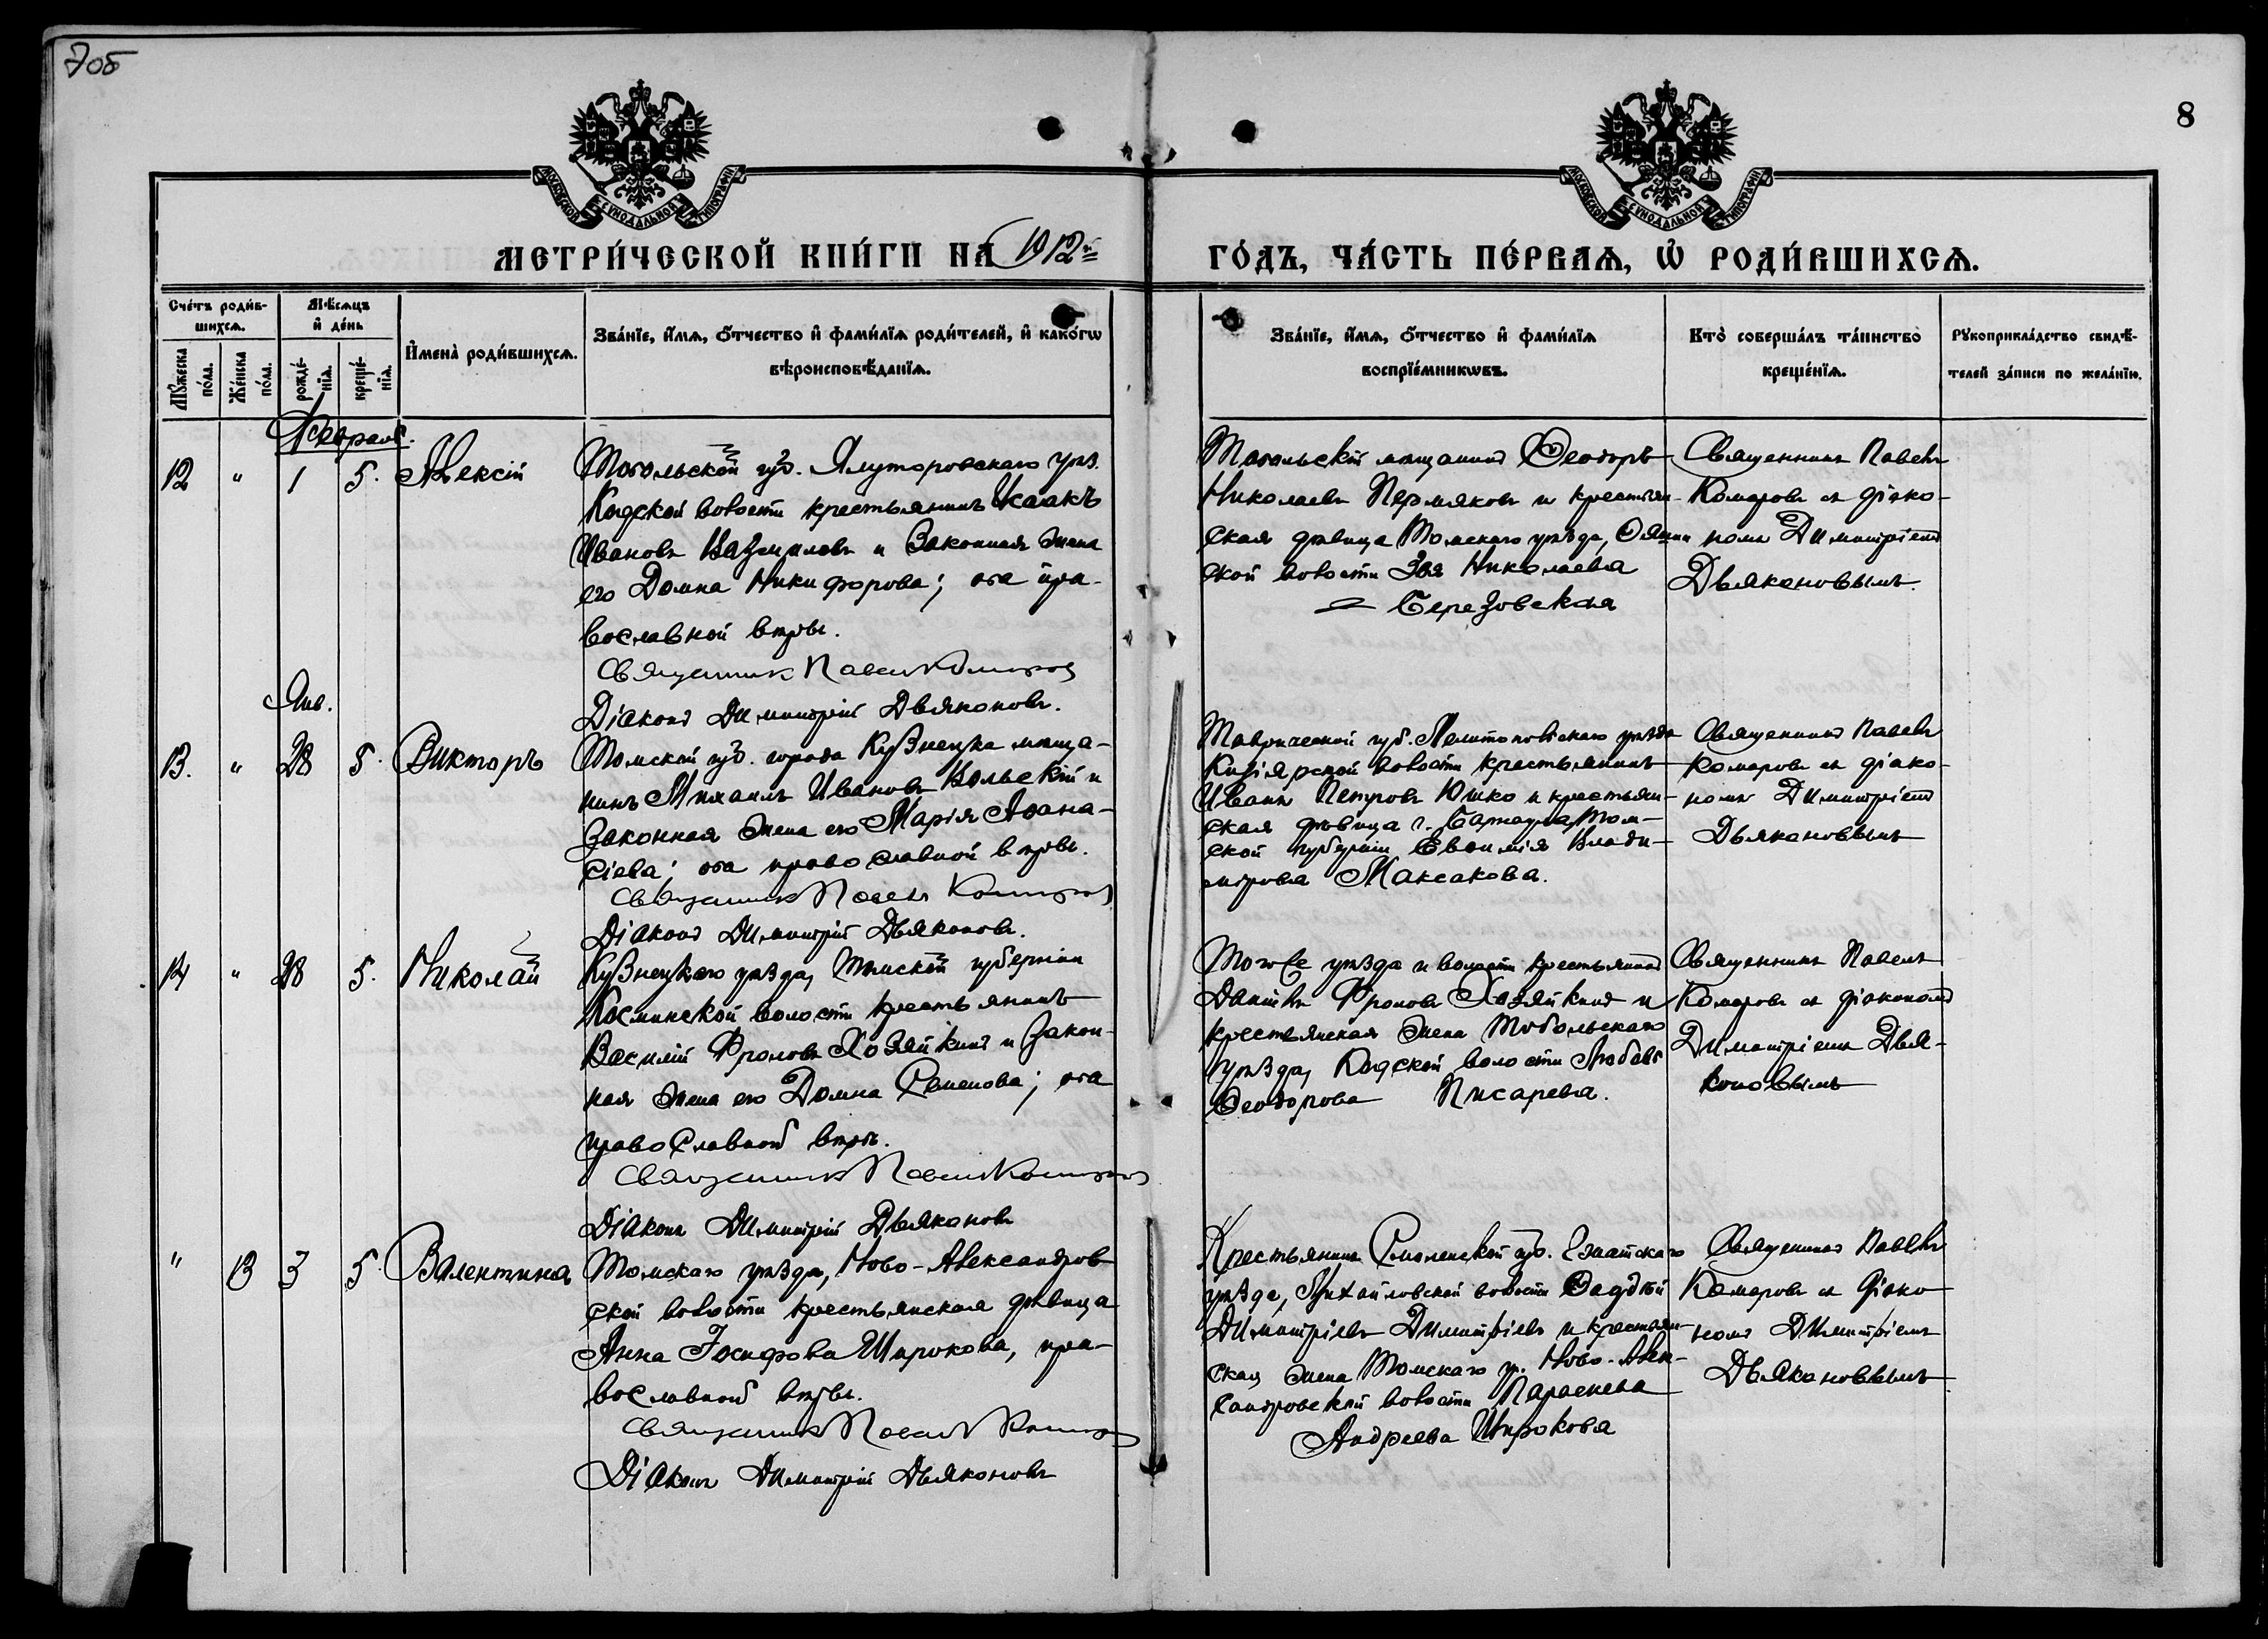 705
8
МОСКОВСКОЙ СУНОДАЛЬНОЙ ТИПОГРАФІИ
МОСКОВСКОЙ СУНОДАЛЬНОЙ ТИПОГРАФІИ
МЕТРИ́ЧЕСКОЙ КНИ́ГИ НА 1912й
ГО́ДЪ, ЧА́СТЬ ПЕ́РВАѦ, Ѡ҆ РОДИ́ВШИХСѦ.
Сче́тъ роди́в-
шихсѧ.
Мѣ́сѧцъ
и҆ де́нь
Мꙋ́жеска по́ла.
Же́нска по́ла.
рожде́-
нїѧ.
креще́-
нїѧ.
И҆мена̀ роди́вшихсѧ.
Зва́нїе, и҆́мѧ, ѻ҆́тчество и҆ фами́лїѧ роди́телей, и҆ како́гѡ
вѣроисповѣ́данїѧ.
Зва́нїе, и҆́мѧ, ѻ҆́тчество и҆ фами́лїѧ
воспрїе́мникѡвъ.
Кто̀ соверша́лъ та́инство
креще́нїѧ.
Рꙋкоприкла́дство свидѣ́-
телей за́писи по жела́нїю.
Февраль.
12 " 1 5. Алексій
Тобольской губ. Ялуторовскаго уѣз.
Кодской волости крестьянинъ Исаакъ
Ивановъ и Законная жена
его Домна Никифорова; оба пра-
вославной вѣры.
Священникъ Павелъ Комаровъ
Діаконъ Димитрій Дьяконовъ.
Тобольскій мѣщанинъ Ѳеодоръ
Николаевъ Пермяковъ и крестьян-
ская дѣвица Томскаго уѣзда, Ояшин
ской волости Зоя Николаева
Березовская
Священникъ Павелъ
Комаровъ съ діако-
номъ Димитріемъ
Дьяконовымъ.
Янв.
13. " 28 5. Викторъ
Томской губ. города Кузнецка мѣща-
нинъ Михаилъ Ивановъ Вольскій и
Законная жена его Марія Аѳана-
сіева; оба православной вѣры.
Священникъ Павелъ Комаровъ
Діаконъ Димитрій Дьяконовъ.
Таврической губ. Мелитопольскаго уѣзда
Кизіярской волости крестьянинъ
Иванъ Петровъ Юшко и крестьян-
ская дѣвица г. Барнаула, Том-
ской губерніи Евѳимія Влади-
мірова Максакова.
Священникъ Павелъ
Комаровъ съ діако-
номъ Димитріемъ
Дьяконовымъ
14 " 28 5. Николай
Кузнецкаго уѣзда, Томской губерніи
Косминской волости крестьянинъ
Василій Фроловъ Хозяйкинъ и Закон-
ная жена его Домна Семенова; оба
православной вѣры.
Священникъ Павелъ Комаровъ
Діаконъ Димитрій Дьяконовъ
Того же уѣзда и волости крестьянинъ
Даніилъ Фроловъ Хозяйкинъ и
крестьянская жена Тобольскаго
уѣзда, Кодской волости Любовь
Ѳеодорова Писарева.
Священникъ Павелъ
Комаровъ съ діакономъ
Димитріемъ Дья-
коновымъ
" 13 3 5 Валентина
Томскаго уѣзда, Ново-Александров
ской волости крестьянская дѣвица
Анна Іосифова Широкова, пра-
вославной вѣры.
Священникъ Павелъ Комаровъ
Діаконъ Димитрій Дьяконовъ
Крестьянинъ Смоленской губ. Гжатскаго
уѣзда, Михайловской волости Ѳаддей
Димитріевъ Димитріевъ и крестьян-
ская жена Томскаго у. Ново-Алек-
сандровской волости Параскева
Андреева Широкова
Священникъ Павелъ
Комаровъ съ діако
номъ Димитріемъ
Дьяконовымъ